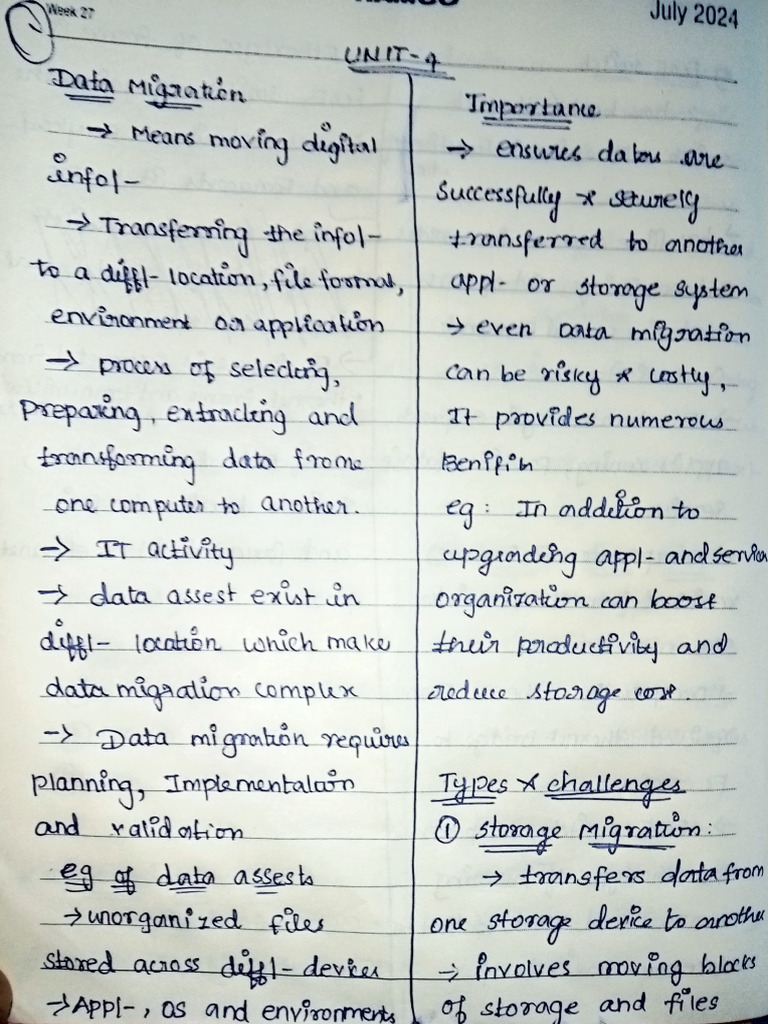 Week 27
July 2024
UNIT-4
Data Migration
→ Means moving digital
infol-
→ Transferring the infol-
to a diffl- location, file format,
environment or application
→ process of selecting,
preparing, extracting and
transforming data frome
one computer to another.
→ IT activity
→ data assest exist in
diffl- location which make
data migration complex
→ Data migration requires
planning, Implementalain
and validation
eg of data assests
→ unorganized files
stored across diffl- devices
→ Appl-, OS and environments
Importance
→ ensures datas are
successfully & seturely
transferred to another
appl- or storage system
→ even data migration
can be risky & costly,
It provides numerous
Benifin
eg: In addetion to
upgrading appl- and service
organization can boost
their productivity and
reduce storage cost.
Types & challenges
① storage Migration:
→ transfers data from
one storage device to another
→ involves moving blocks
of storage and files